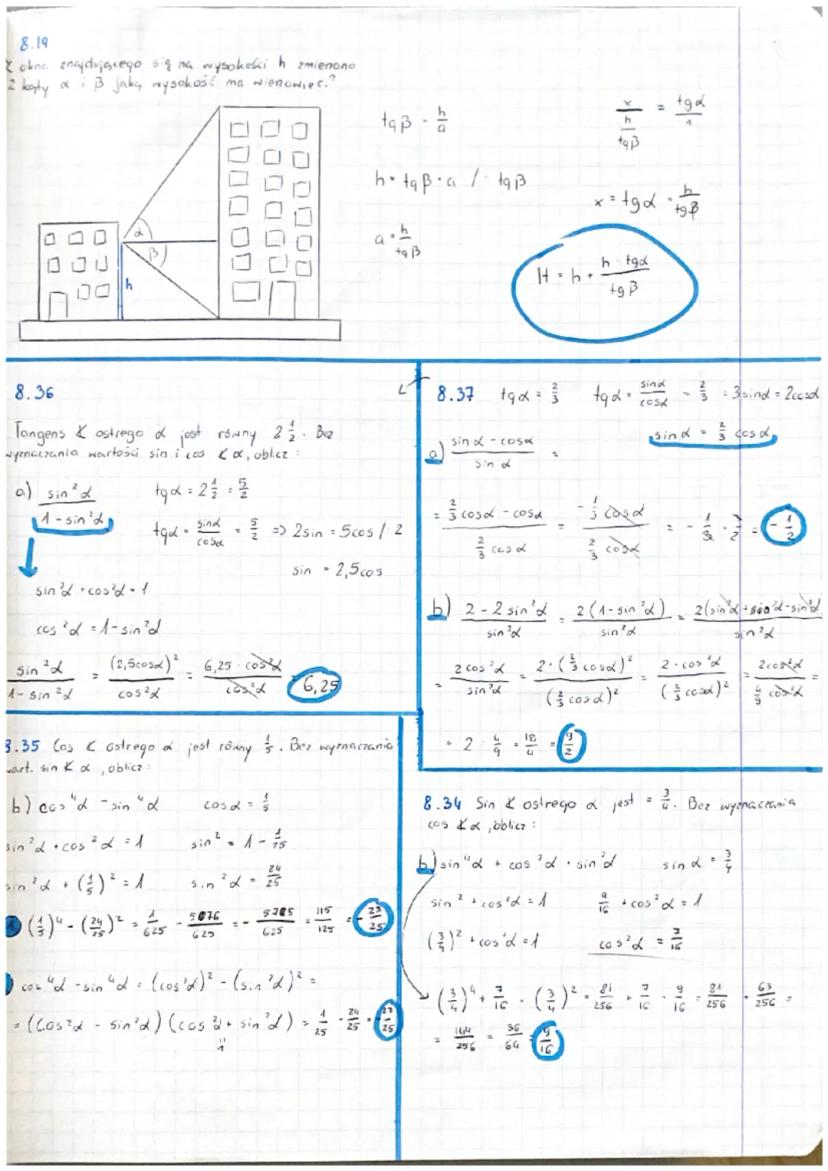 8.19
Z okna znajdującego się na wysokości h zmienono
2 kąty α i β jaką wysokość ma wieżowiec?
α
β
h
tgβ = h/a
h = tgβ · a / : tgβ
a = h/tgβ
x/(h/tgβ) = tgα/1
x = tgα · h/tgβ
H = h + (h · tgα)/tgβ
8.36
Tangens ∢ ostrego α jest równy 2 1/2. Bez
wyznaczania wartości sin i cos ∢ α, oblicz:
a) sin²α/(1 - sin²α)
tgα = 2 1/2 = 5/2
tgα = sinα/cosα = 5/2 => 2sin = 5cos / 2
sin = 2,5cos
sin²α + cos²α = 1
cos²α = 1 - sin²α
sin²α/(1 - sin²α) = (2,5cosα)²/cos²α = 6,25 · cos²α/cos²α = 6,25
8.37 tgα = 2/3 tgα = sinα/cosα = 2/3 = 3sinα = 2cosα
sinα = 2/3 cosα
a) (sinα - cosα)/sinα =
= (2/3 cosα - cosα)/(2/3 cosα) = (-1/3 cosα)/(2/3 cosα) = - 1/3 · 3/2 = - 1/2
b) (2 - 2sin²α)/sin²α = 2(1 - sin²α)/sin²α = 2(sin²α + cos²α - sin²α)/sin²α
= 2cos²α/sin²α = 2 · (2/3 cosα)²/(2/3 cosα)² = 2 · cos²α/(2/3 cosα)² = 2cos²α/(4/9 cos²α) =
= 2 · 4/9 = 18/4 = 9/2
8.35 Cos ∢ ostrego α jest równy 1/5. Bez wyznaczania
wart. sin ∢ α, oblicz:
b) cos⁴α - sin⁴α cosα = 1/5
sin²α + cos²α = 1 sin² = 1 - 1/25
sin²α + (1/5)² = 1 sin²α = 24/25
(1/5)⁴ - (24/25)² = 1/625 - 576/625 = - 575/625 = 115/125 = - 23/25
cos⁴α - sin⁴α = (cos²α)² - (sin²α)² =
= (cos²α - sin²α)(cos²α + sin²α) = 1/25 - 24/25 = - 23/25
8.34 Sin ∢ ostrego α jest = 3/4. Bez wyznaczania
cos ∢ α, oblicz:
b) sin⁴α + cos²α · sin²α sinα = 3/4
sin² + cos²α = 1 9/16 + cos²α = 1
(3/4)² + cos²α = 1 cos²α = 7/16
(3/4)⁴ + 7/16 · (3/4)² = 81/256 + 7/16 · 9/16 = 81/256 + 63/256 =
= 144/256 = 36/64 = 9/16